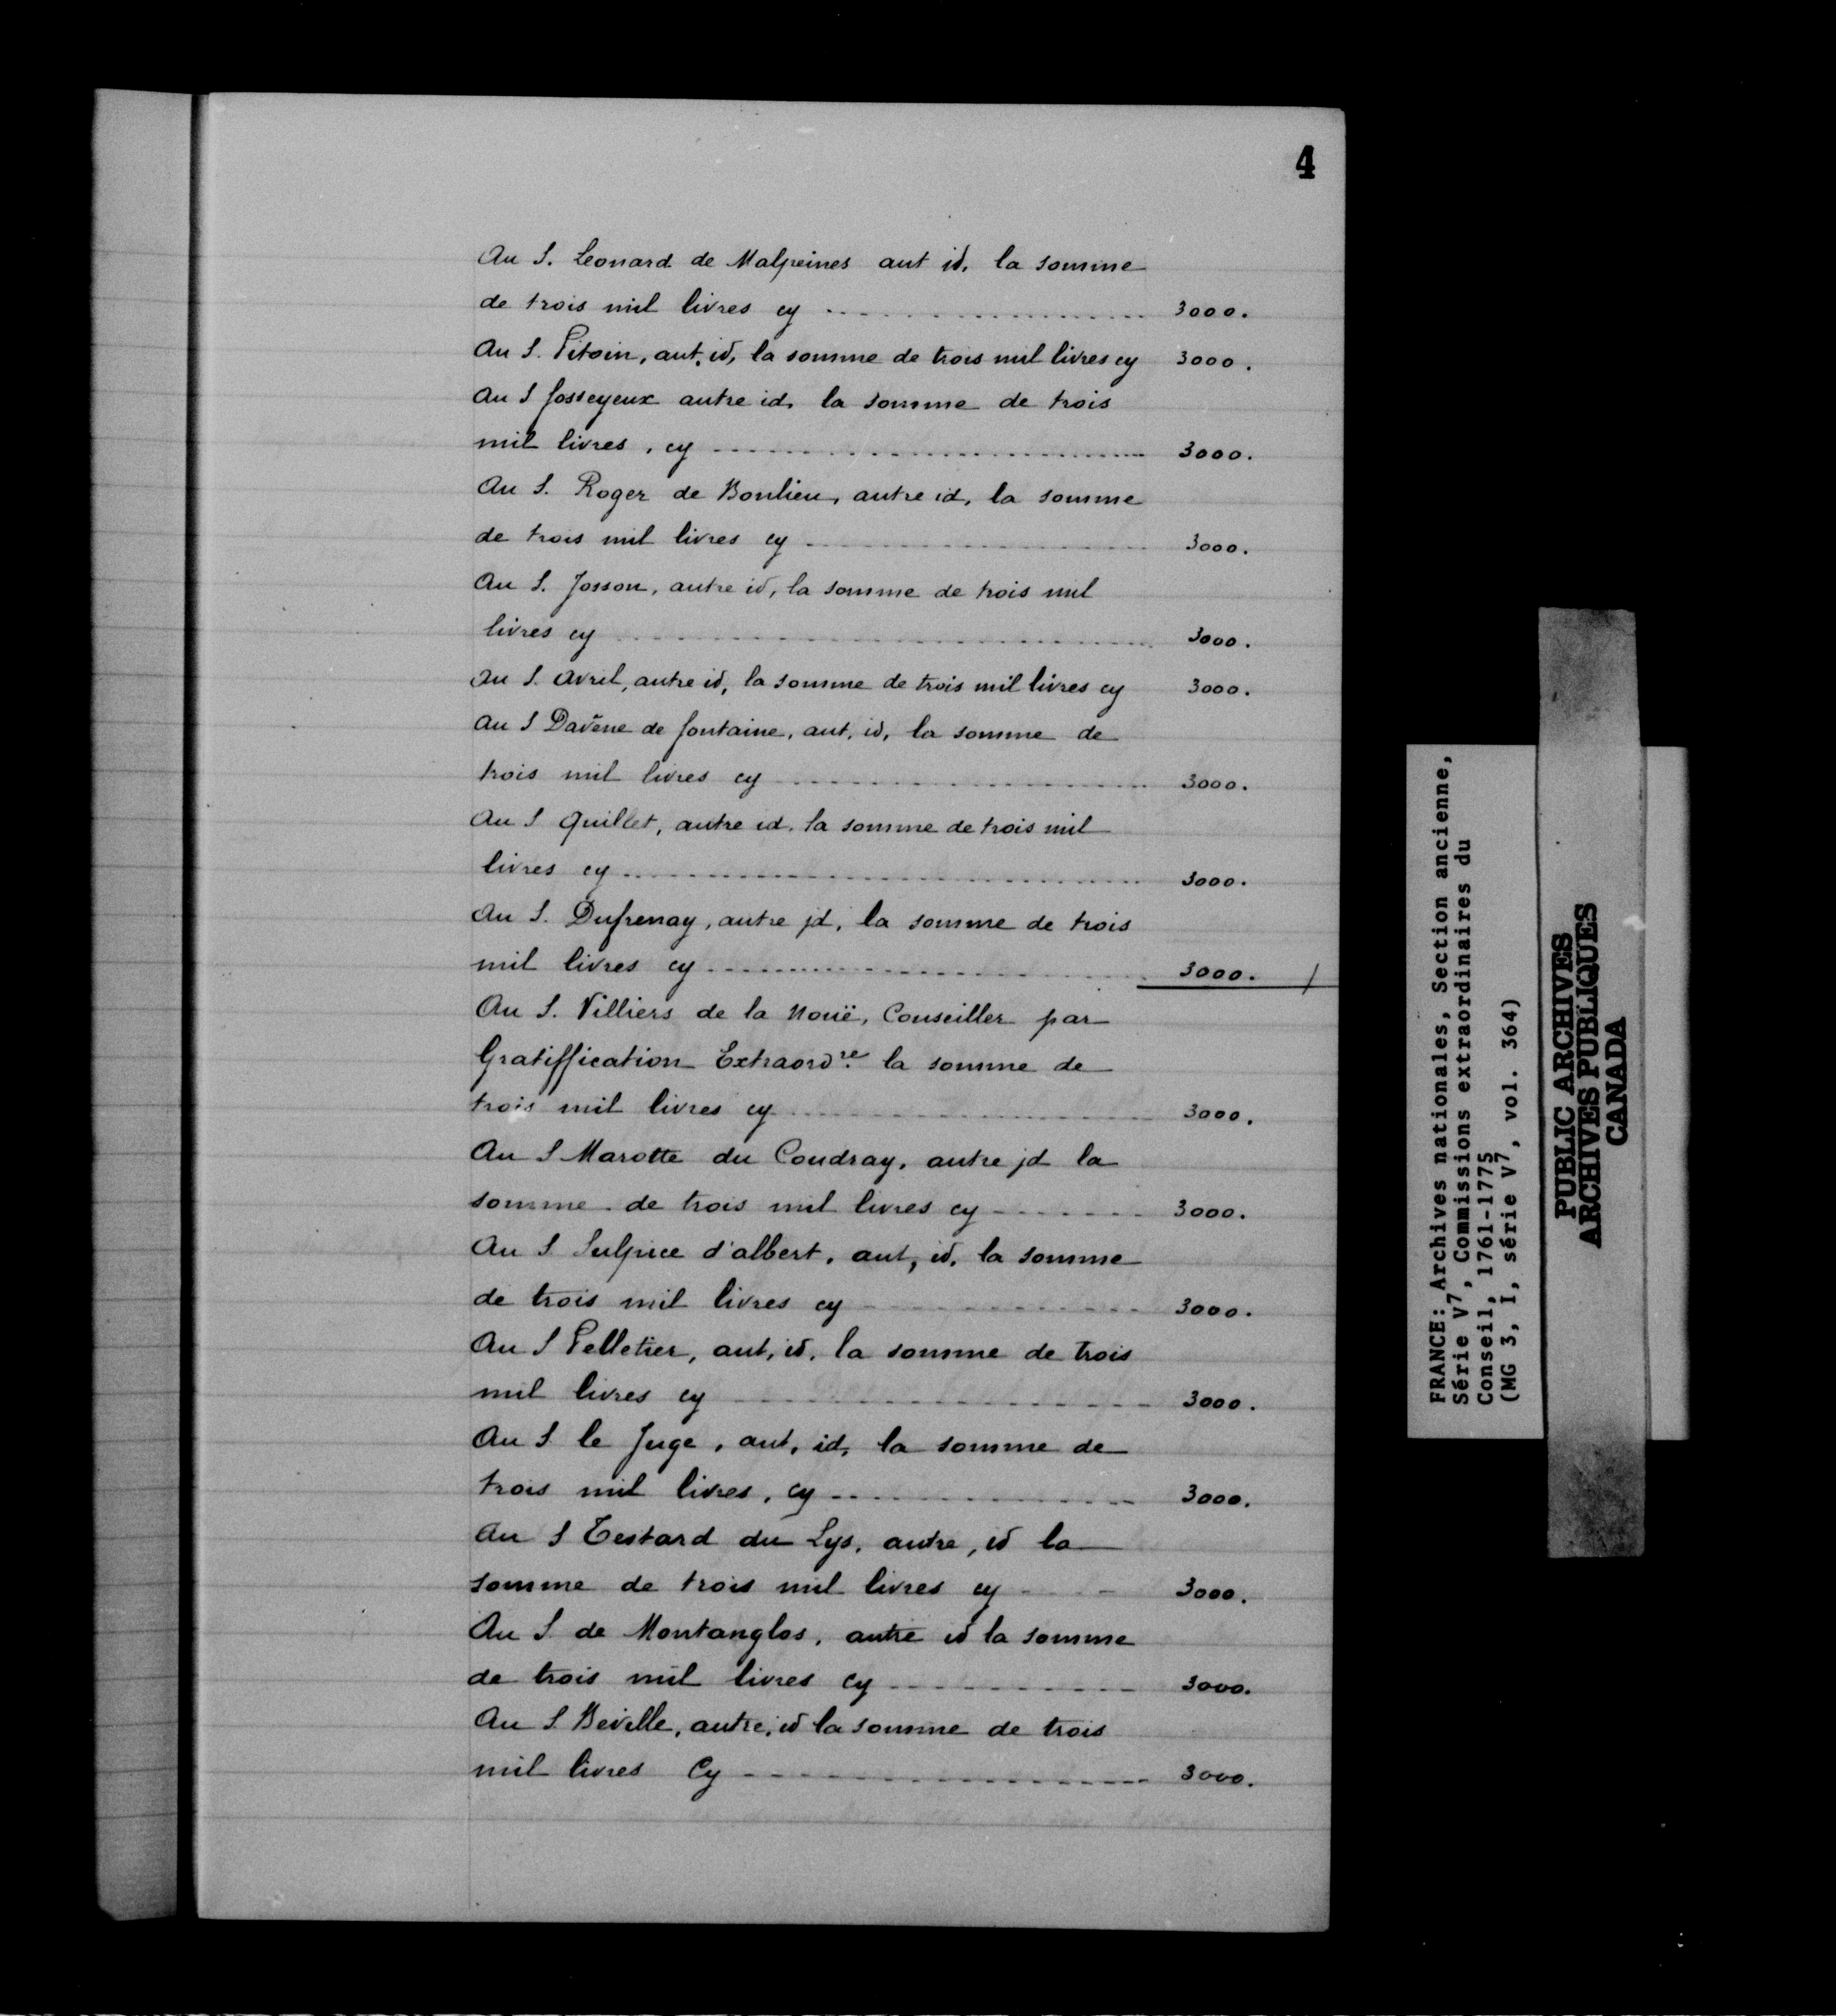 4
Au S. Leonard de Malpeines aut id, la somme
de trois mil livres cy .................. 3000.
Au S. Pitoin, aut, id, la somme de trois mil livres cy 3000.
Au S fosseyeux autre id, la somme de trois
mil livres, cy .................. 3000.
Au S. Roger de Bonlieu, autre id, la somme
de trois mil livres cy .................. 3000.
Au S. Josson, autre id, la somme de trois mil
livres cy .................. 3000.
Au S. Avril, autre id, la somme de trois mil livres cy 3000.
Au S Davêne de fontaine, aut, id, la somme de
trois mil livres cy .................. 3000.
Au S Quillet, autre id, la somme de trois mil
livres cy .................. 3000.
Au S. Dufrenay, autre jd, la somme de trois
mil livres cy .................. 3000. /
Au S. Villiers de la Nouë, Conseiller par
Gratiffication Extraordre la somme de
trois mil livres cy .................. 3000.
Au S Marotte du Coudray, autre jd la
somme de trois mil livres cy ....... 3000.
Au S Sulpice d'albert, aut, id, la somme
de trois mil livres cy ............ 3000.
Au S Pelletier, aut, id, la somme de trois
mil livres cy .................. 3000.
Au S le Juge, aut, id, la somme de
trois mil livres, cy ............... 3000.
Au S Testard du Lys, autre, id la
somme de trois mil livres cy .... 3000.
Au S de Montanglos, autre id la somme
de trois mil livres cy ............ 3000.
Au S Beville, autre, id la somme de trois
mil livres Cy .................. 3000.
FRANCE: Archives nationales, Section ancienne,
Série V7, Commissions extraordinaires du
Conseil, 1761-1775
(MG 3, I, série V7, vol. 364)
PUBLIC ARCHIVES
ARCHIVES PUBLIQUES
CANADA